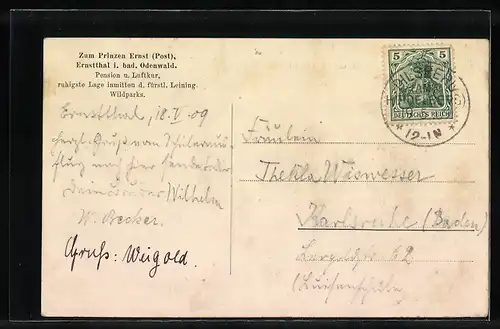 Zum Prinzen Ernst (Post),
Ernstthal i. bad. Odenwald.
Pension u. Luftkur,
ruhigste Lage inmitten d. fürstl. Leining.
Wildparks.
Ernstthal, 18.V.09
herzl. Gruß von
Wilhelm
W. Becker.
Gruß: Weigold.
5 5
DEUTSCHES REICH
12-1N
Fräulein
Thekla Waswesser
Karlsruhe (Baden)
Leopoldstr 62
(Luisenschule)